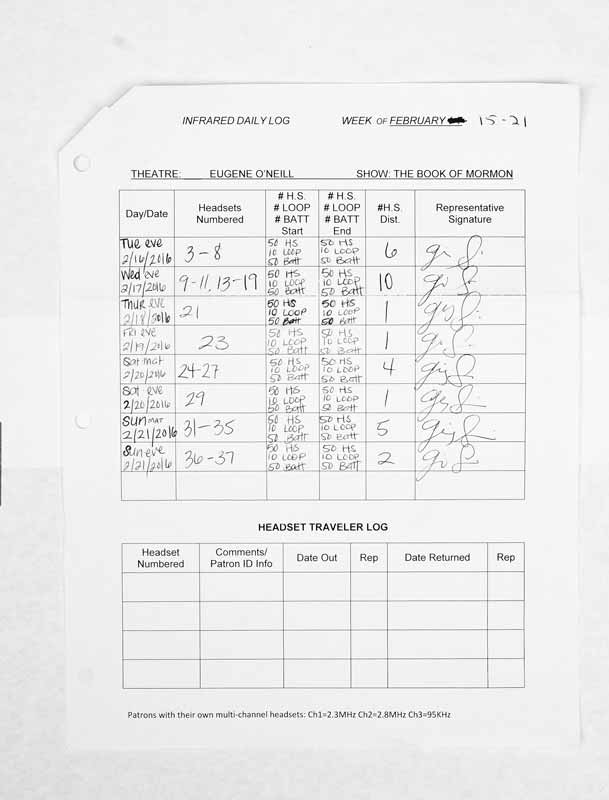 INFRARED DAILY LOG WEEK OF FEBRUARY 15-21
THEATRE: EUGENE O'NEILL SHOW: THE BOOK OF MORMON
Day/Date Headsets Numbered # H.S. # LOOP # BATT Start # H.S. # LOOP # BATT End #H.S. Dist. Representative Signature
Tue eve 2/16/2016 3-8 50 HS 10 LOOP 50 Batt 50 HS 10 LOOP 50 Batt 6
Wed eve 2/17/2016 9-11, 13-19 50 HS 10 LOOP 50 Batt 50 HS 10 LOOP 50 Batt 10
Thur eve 2/18/2016 21 50 HS 10 LOOP 50 Batt 50 HS 10 LOOP 50 Batt 1
Fri eve 2/19/2016 23 50 HS 10 LOOP 50 Batt 50 HS 10 LOOP 50 Batt 1
Sat mat 2/20/2016 24-27 50 HS 10 LOOP 50 Batt 50 HS 10 LOOP 50 Batt 4
Sat eve 2/20/2016 29 50 HS 10 LOOP 50 Batt 50 HS 10 LOOP 50 Batt 1
Sun mat 2/21/2016 31-35 50 HS 10 LOOP 50 Batt 50 HS 10 LOOP 50 Batt 5
Sun eve 2/21/2016 36-37 50 HS 10 LOOP 50 Batt 50 HS 10 LOOP 50 BATT 2
HEADSET TRAVELER LOG
Headset Numbered Comments/ Patron ID Info Date Out Rep Date Returned Rep
Patrons with their own multi-channel headsets: Ch1=2.3MHz Ch2=2.8MHz Ch3=95KHz